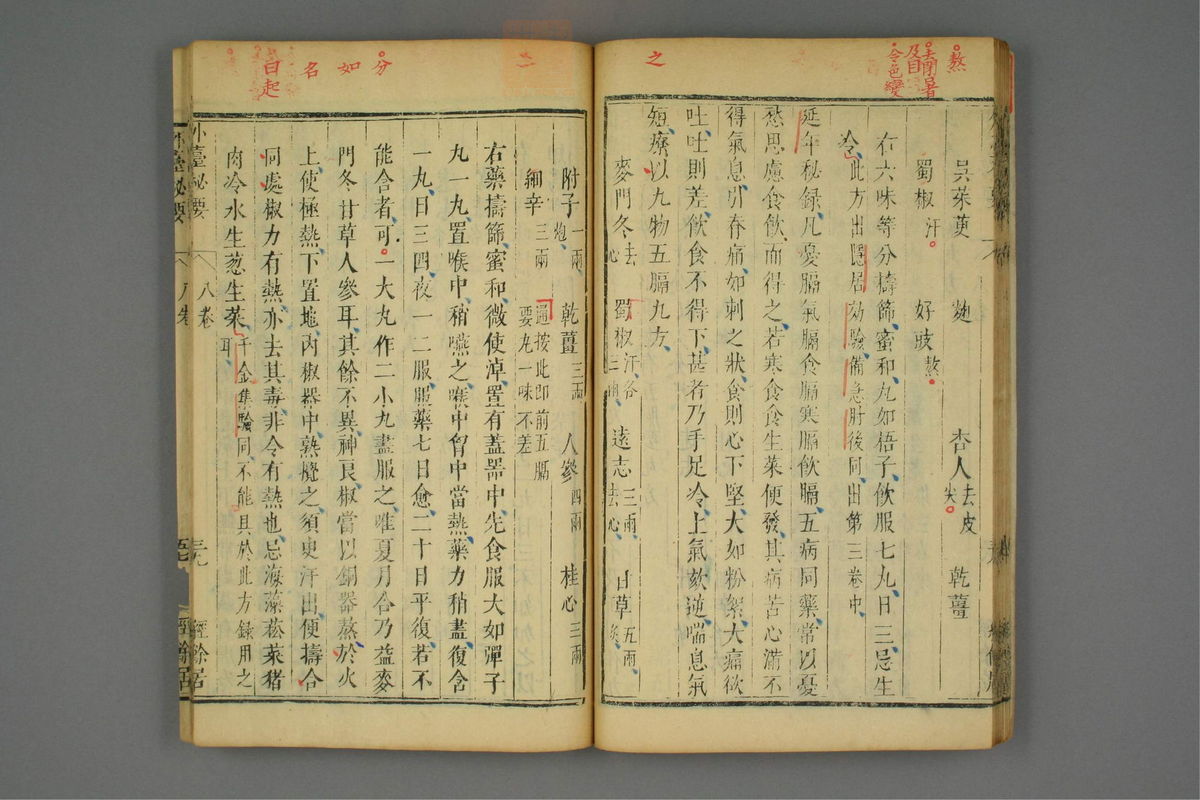 熬
去閉口者
及目
令色變
之
吳茱萸 麴 杏人去皮尖 乾薑
蜀椒汗 好豉熬
右六味等分擣篩蜜和丸如梧子飲服七丸日三忌生
冷此方出隱居効驗備急肘後同出第三卷中
延年秘録凡憂膈氣膈食膈寒膈飲膈五病同藥常以憂
愁思慮食飲而得之若寒食食生菜便發其病苦心滿不
得氣息引脊痛如刺之狀食則心下堅大如粉絮大痛欲
吐吐則差飲食不得下甚者乃手足冷上氣欬逆喘息氣
短療以九物五膈丸方
麥門冬去心 蜀椒汗各三兩 遠志三兩去心 甘草五兩炙
分
如
名
白起
附子一兩炮 乾薑三兩 人參四兩 桂心三兩
細辛三兩 通按此即前五膈要丸一味不差
右藥擣篩蜜和微使淖置有蓋器中先食服大如彈子
丸一丸置喉中稍嚥之喉中胷中當熱藥力稍盡復含
一丸日三四夜一二服服藥七日愈二十日平復若不
能含者可一大丸作二小丸盡服之唯夏月合乃益麥
門冬甘草人參耳其餘不異神良椒當以銅器熬於火
上使極熱下置地內椒器中熟攪之須臾汗出便擣合
同處椒力有熱亦去其毒非令有熱也忌海藻菘菜猪
肉冷水生葱生菜千金集驗同不能具於此方録用之耳
外臺秘要 八卷 三九 經餘居